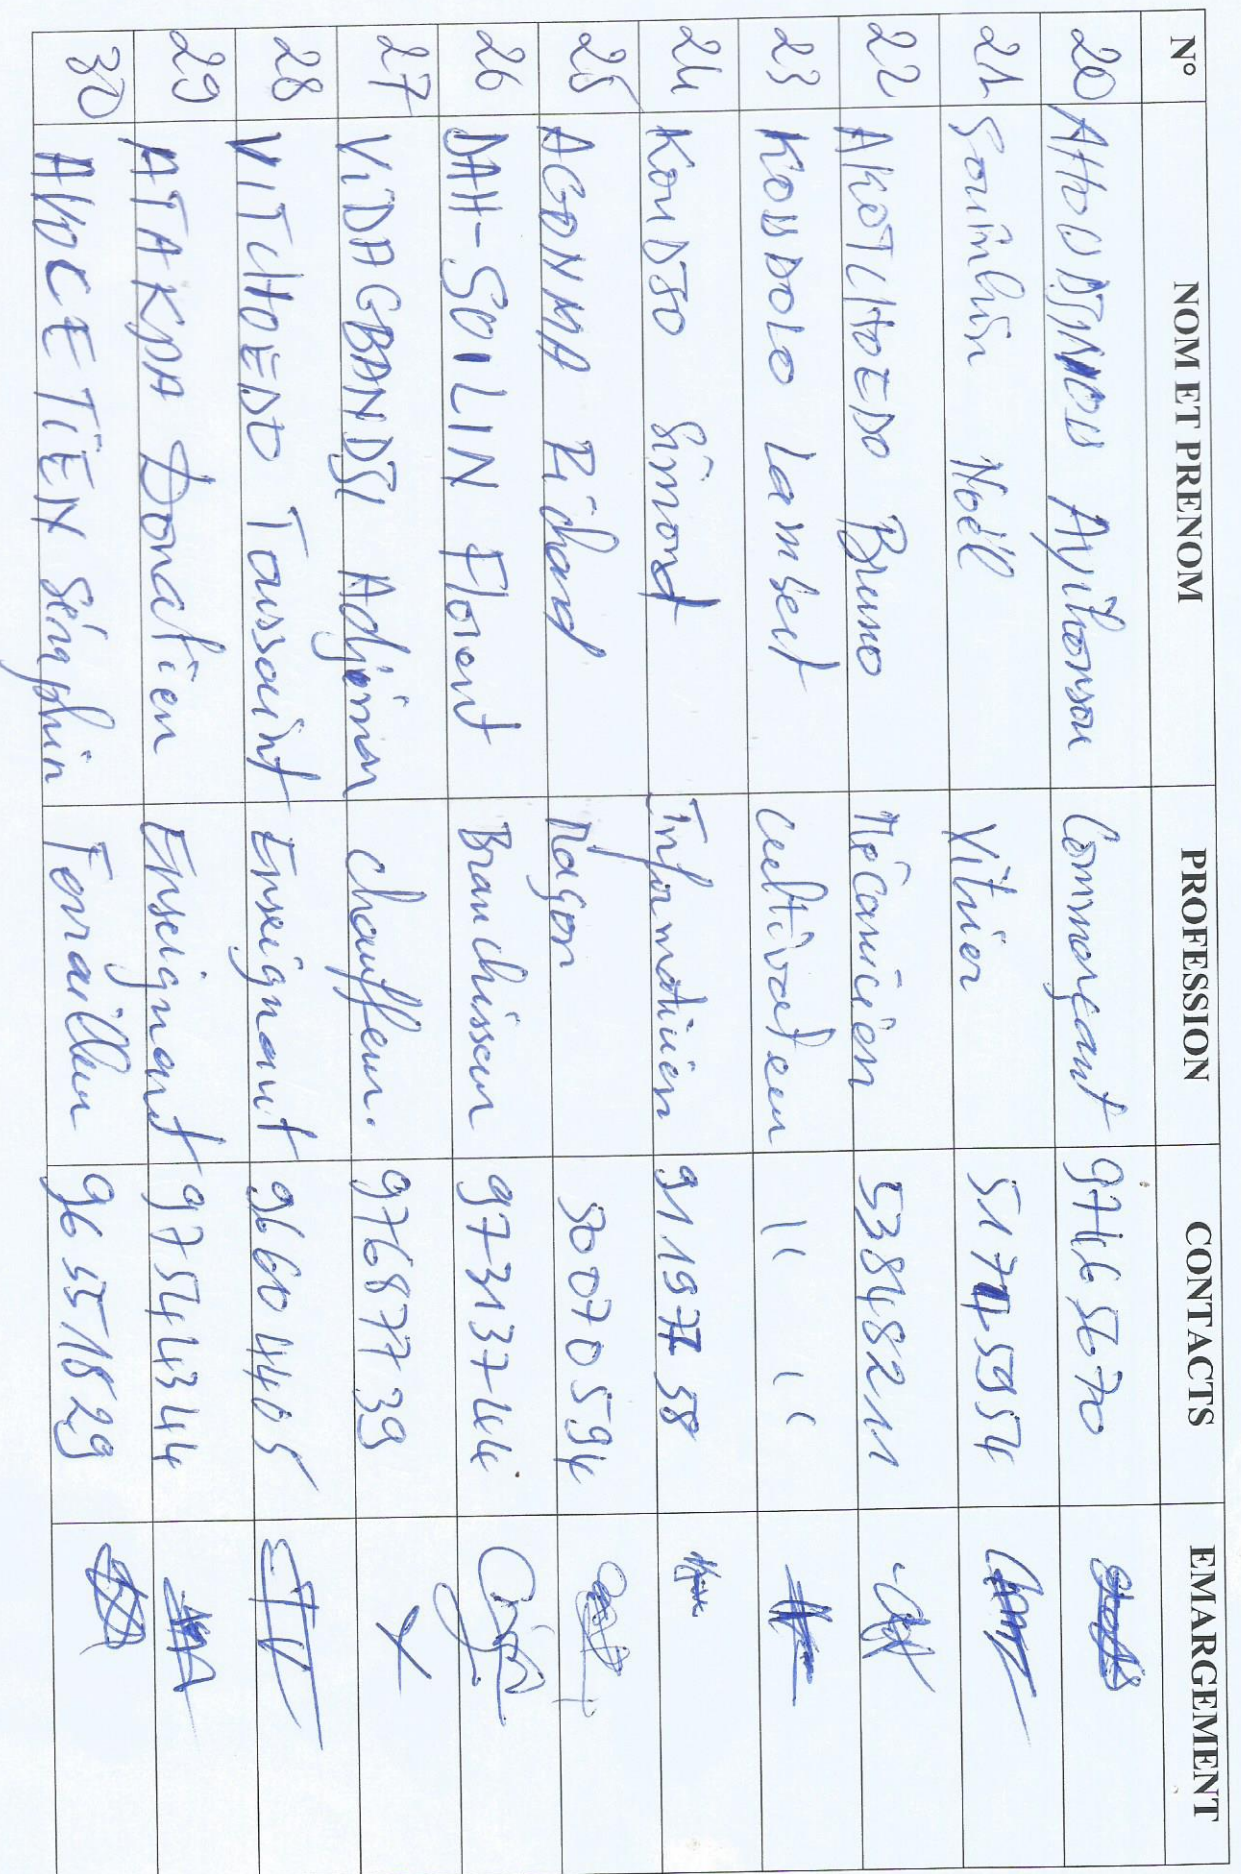 N° NOM ET PRENOM PROFESSION CONTACTS EMARGEMENT
20 Ayihonsou Commerçant 97465670
21 Gouinhin Noël Vitrier 51745954
22 AKOTCHOEDO Bruno Mécanicien 53848211
23 KOUDOLO Lambert Cultivateur " "
24 KOUDJO Simond Informaticien 91197758
25 AGONMA Richard Maçon 90070594
26 DAH-SOILIN Florent Branchisseur 97313744
27 ViDAGBANDJI Adjiman chauffeur. 97687739
28 VITCHOEDO Toussaint Enseignant 96604405
29 ATAKPA Donatien Enseignant 97544344
30 AVOCETIEN Séraphin Ferrailleur 96551829